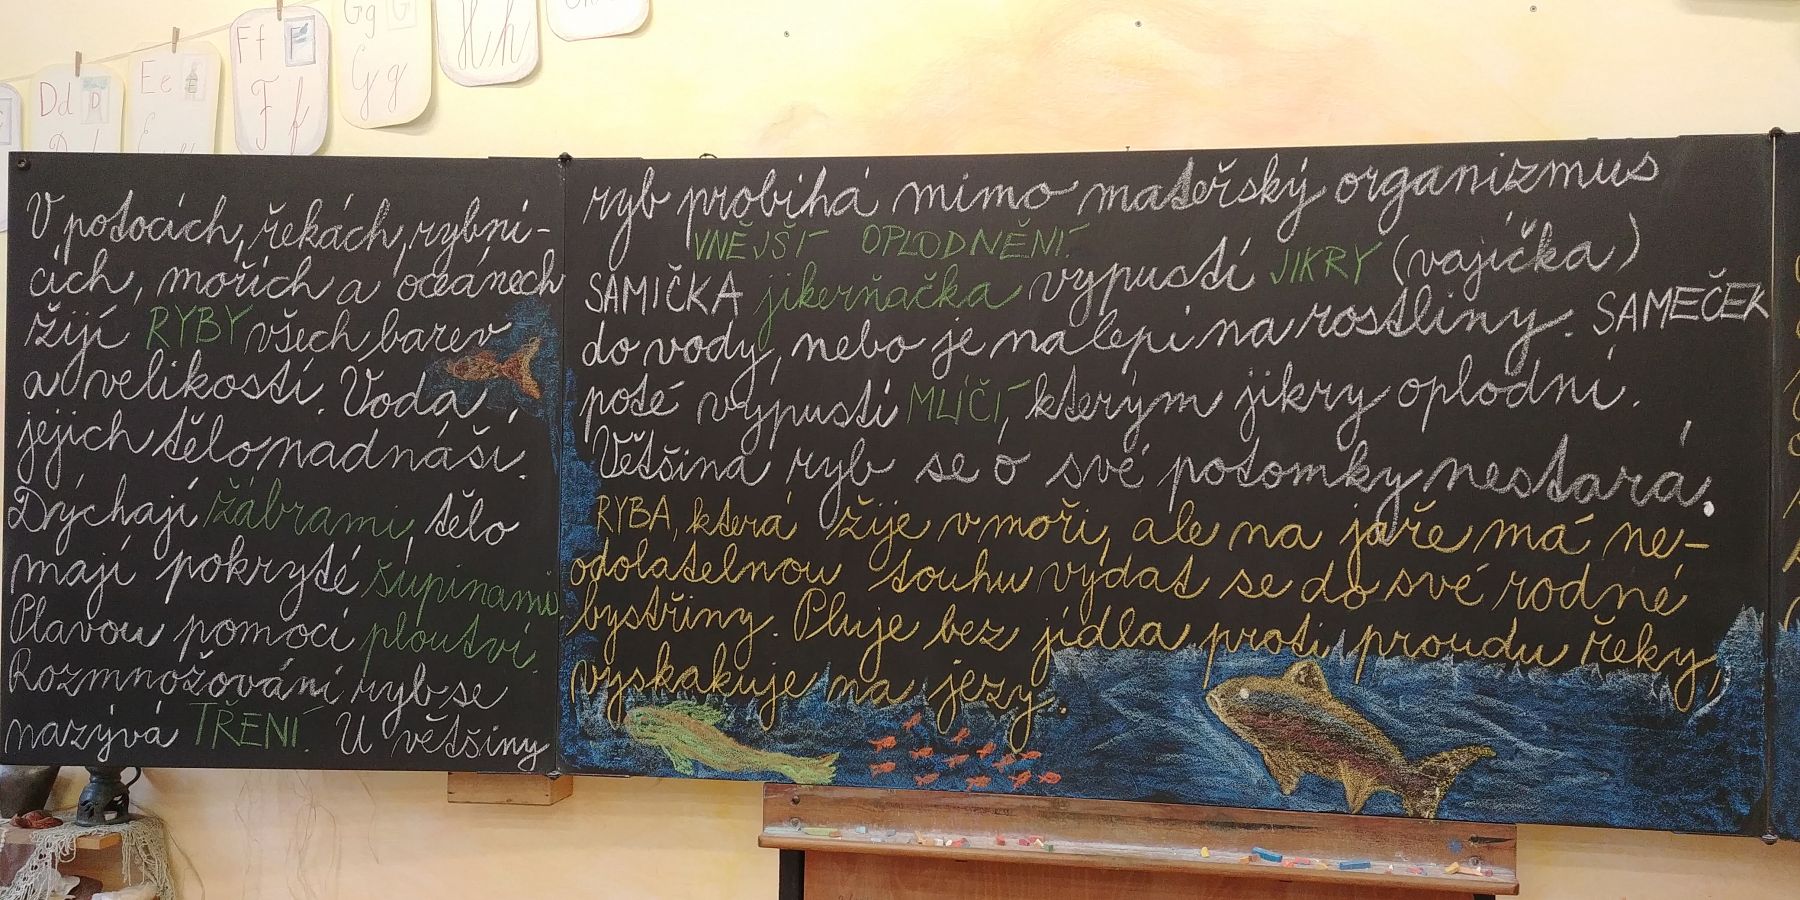 Dd D
Ee E
Ff F
F f
Gg G
G g
H h
V potocích, řekách, rybní-
cích, mořích a oceánech
žijí RYBY všech barev
a velikostí. Voda
jejich tělo nadnáší.
Dýchají žábrami, tělo
mají pokryté šupinami
Plavou pomocí ploutví.
Rozmnožování ryb se
nazývá TŘENÍ. U většiny
ryb probíhá mimo mateřský organizmus
VNĚJŠÍ OPLODNĚNÍ.
SAMIČKA jikernačka vypustí JIKRY (vajíčka)
do vody, nebo je nalepí na rostliny. SAMEČEK
poté vypustí MLÍČÍ, kterým jikry oplodní.
Většina ryb se o své potomky nestará.
RYBA, která žije v moři, ale na jaře má ne-
odolatelnou touhu vydat se do své rodné
bystřiny. Pluje bez jídla proti proudu řeky,
vyskakuje na jezy.